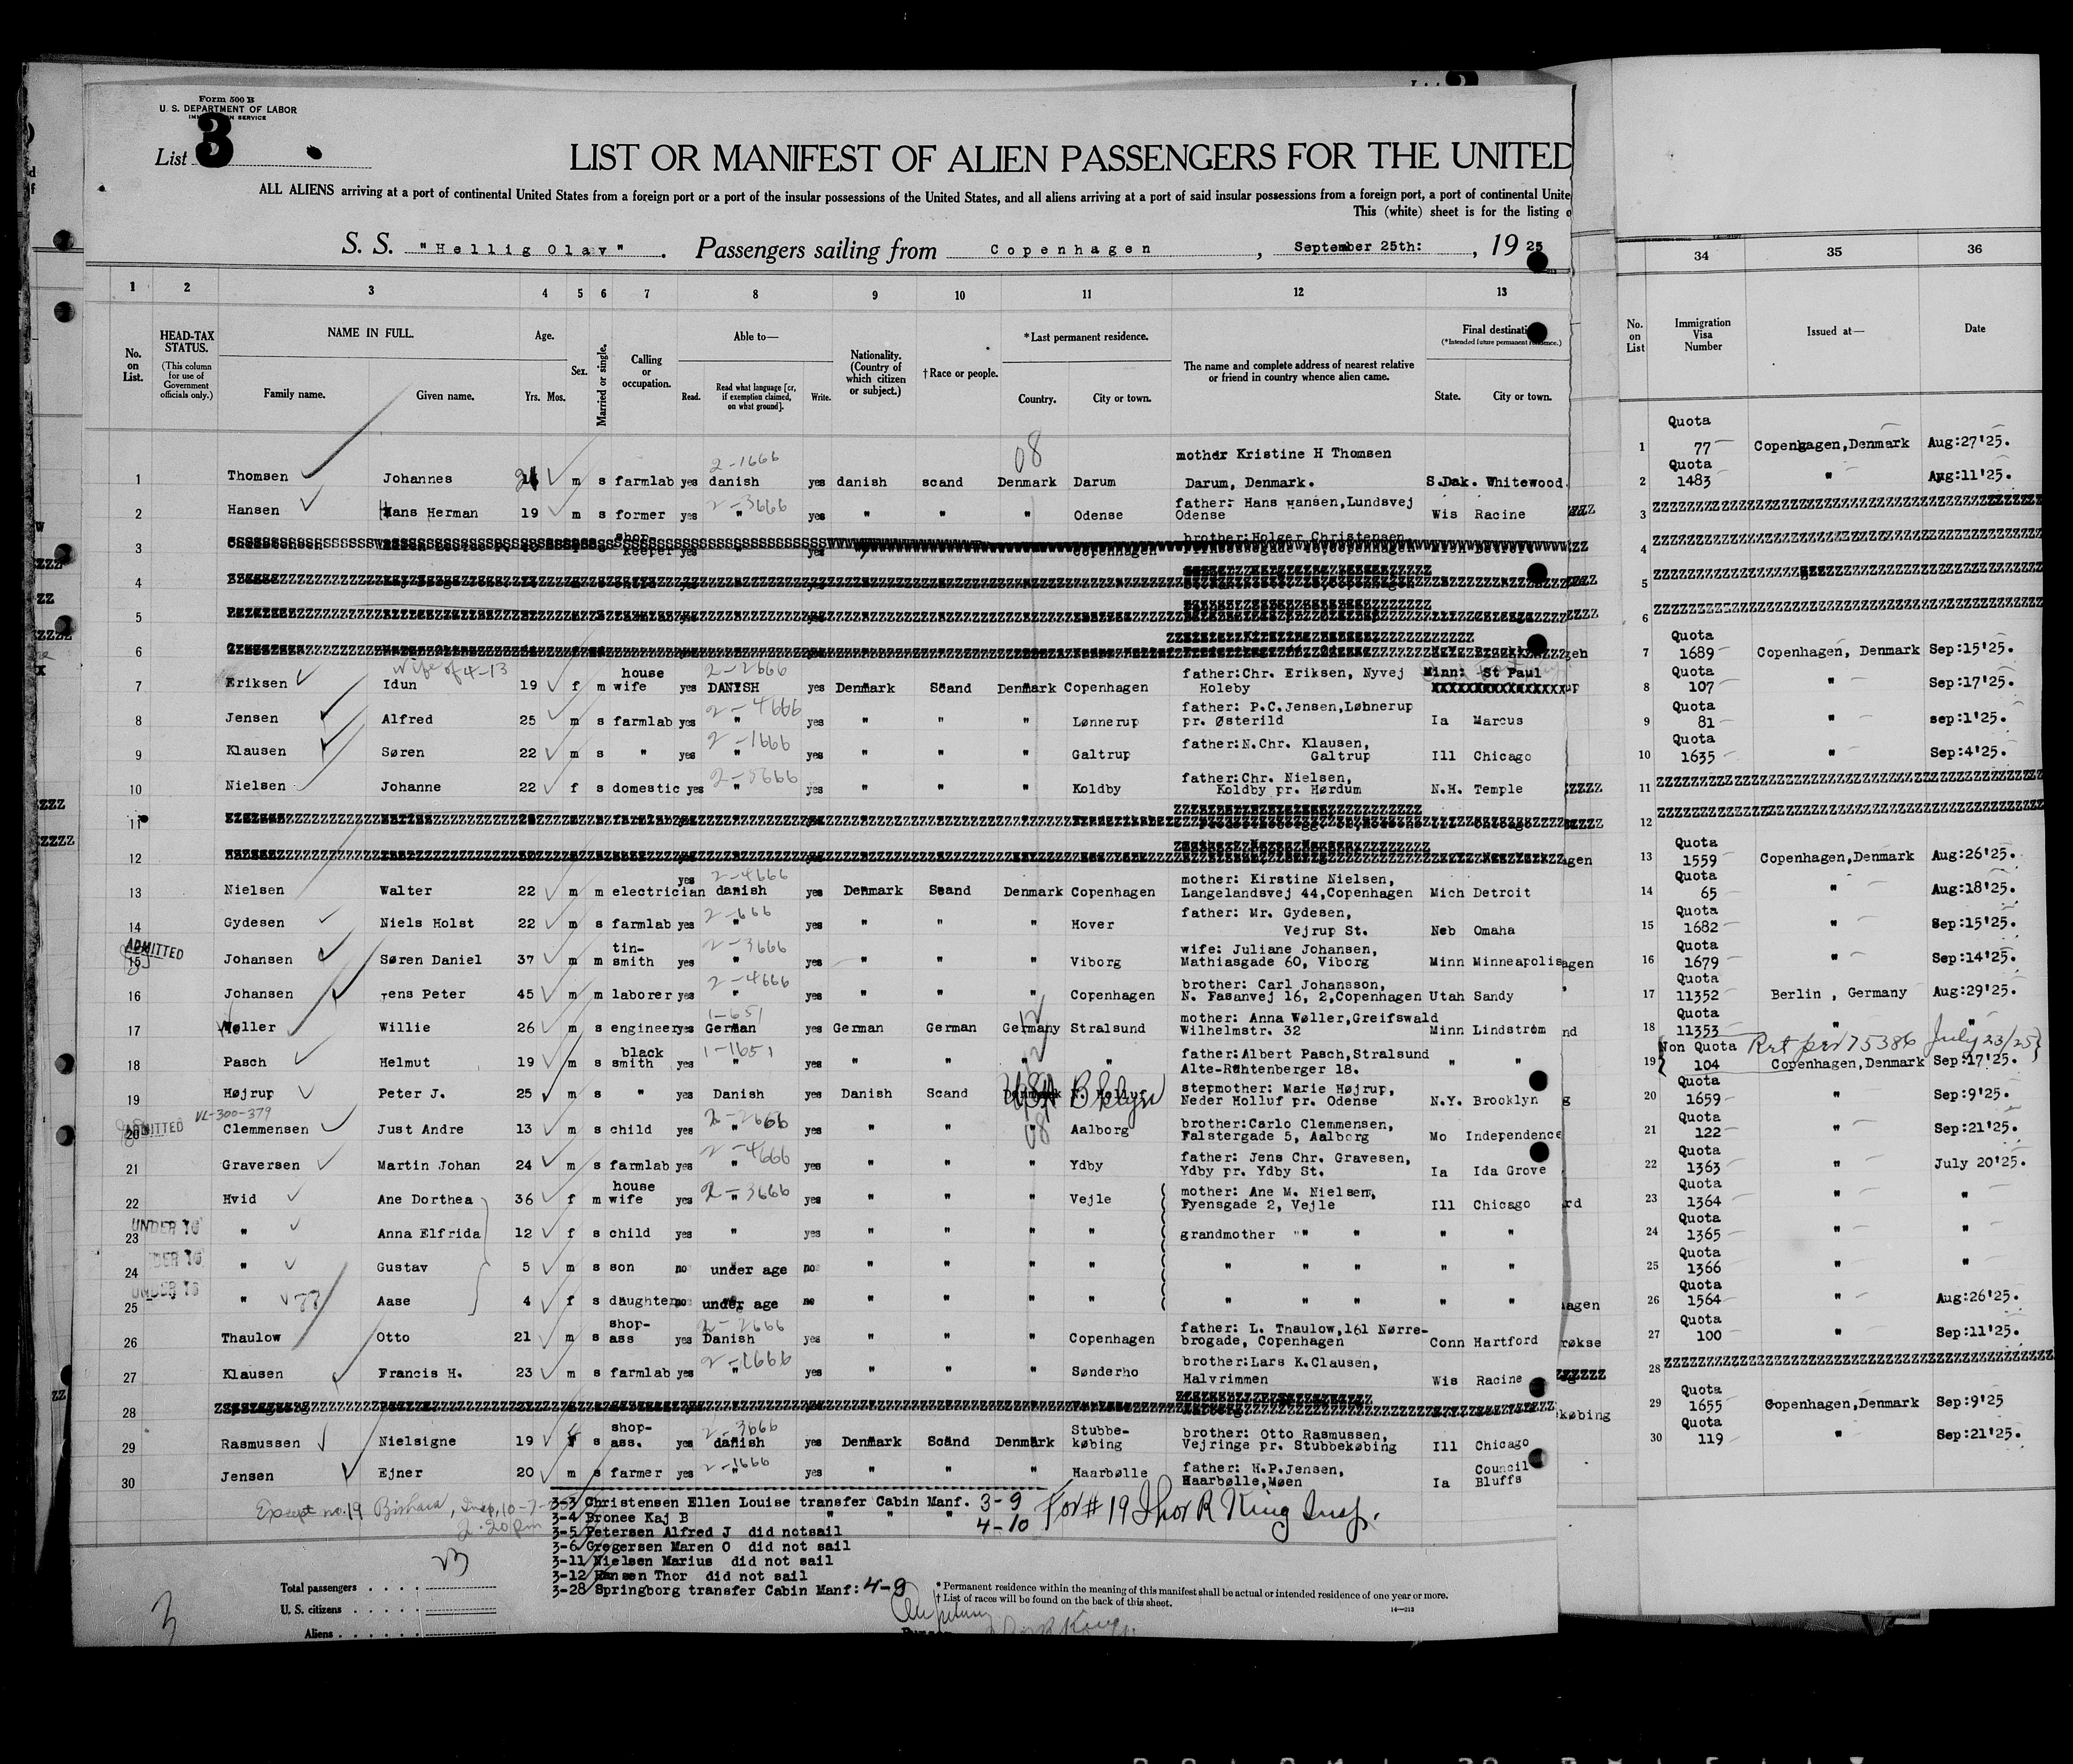 Form 500 B
U. S. DEPARTMENT OF LABOR
IMMIGRATION SERVICE
List 3
LIST OR MANIFEST OF ALIEN PASSENGERS FOR THE UNITED
ALL ALIENS arriving at a port of continental United States from a foreign port or a port of the insular possessions of the United States, and all aliens arriving at a port of said insular possessions from a foreign port, a port of continental Unite
This (white) sheet is for the listing o
S. S. "Hellig Olav". Passengers sailing from Copenhagen, September 25th:, 1925
1 2 3 4 5 6 7 8 9 10 11 12 13 34 35 36
No. on List.
HEAD-TAX STATUS. (This column for use of Government officials only.)
NAME IN FULL.
Family name. Given name.
Age. Yrs. Mos.
Sex.
Married or single.
Calling or occupation.
Able to—
Read. Read what language [or, if exemption claimed, on what ground]. Write.
Nationality. (Country of which citizen or subject.)
†Race or people.
*Last permanent residence.
Country. City or town.
The name and complete address of nearest relative or friend in country whence alien came.
Final destination
(*Intended future permanent residence.)
State. City or town.
No. on List Immigration Visa Number Issued at— Date
2-1666 08 mother Kristine H Thomsen
1 Thomsen Johannes m s farmlab yes danish yes danish scand Denmark Darum Darum, Denmark. S.Dak. Whitewood. 1 Quota 77 Copenhagen,Denmark Aug:27'25.
2-3666
2 Hansen Hans Herman 19 m s former yes " yes " " " Odense father: Hans Hansen,Lundsvej Odense Wis Racine 2 Quota 1483 " Aug:11'25.
3 shop keeper yes Copenhagen brother:Holger Christensen 3
4 4
5 5
6 6
wife of 4-13 2-2666
7 Eriksen Idun 19 f m house wife yes DANISH yes Denmark Scand Denmark Copenhagen father:Chr. Eriksen, Nyvej Holeby Minn: St Paul 7 Quota 1689 Copenhagen, Denmark Sep:15'25.
2-4666
8 Jensen Alfred 25 m s farmlab yes " yes " " " Lønnerup father: P.C.Jensen,Løhnerup pr. Østerild Ia Marcus 8 Quota 107 " Sep:17'25.
2-1666
9 Klausen Søren 22 m s " yes " yes " " " Galtrup father:N.Chr. Klausen, Galtrup Ill Chicago 9 Quota 81 " sep:1'25.
2-5666
10 Nielsen Johanne 22 f s domestic yes " yes " " " Koldby father:Chr. Nielsen, Koldby pr. Hørdum N.H. Temple 10 Quota 1635 " Sep:4'25.
11 11
12 12
2-4666
13 Nielsen Walter 22 m m electrician yes danish yes Denmark Scand Denmark Copenhagen mother: Kirstine Nielsen, Langelandsvej 44,Copenhagen Mich Detroit 13 Quota 1559 Copenhagen,Denmark Aug:26'25.
2-666
14 Gydesen Niels Holst 22 m s farmlab yes " yes " " " Hover father: Mr. Gydesen, Vejrup St. Neb Omaha 14 Quota 65 " Aug:18'25.
ADMITTED 2-3666
15 Johansen Søren Daniel 37 m m tin-smith yes " yes " " " Viborg wife: Juliane Johansen, Mathiasgade 60, Viborg Minn Minneapolis 15 Quota 1682 " Sep:15'25.
2-4666
16 Johansen Jens Peter 45 m m laborer yes " yes " " " Copenhagen brother: Carl Johansson, N. Fasanvej 16, 2,Copenhagen Utah Sandy 16 Quota 1679 " Sep:14'25.
1-651
17 Wøller Willie 26 m s engineer yes German yes German German Germany Stralsund mother: Anna Wøller,Greifswald Wilhelmstr. 32 Minn Lindstrøm 17 Quota 11352 Berlin , Germany Aug:29'25.
1-1651
18 Pasch Helmut 19 m s black smith yes " yes " " " " father:Albert Pasch,Stralsund Alte-Rahtenberger 18. " " 18 Quota 11353 " "
Ret per 175386 July 23/25
19 Højrup Peter J. 25 m s " yes Danish yes Danish Scand USA Bklyn stepmother: Marie Højrup, Neder Holluf pr. Odense N.Y. Brooklyn 19 Non Quota 104 Copenhagen,Denmark Sep:17'25.
VL-300-379 ADMITTED 2-2666 08
20 Clemmensen Just Andre 13 m s child yes " yes " " " Aalborg brother:Carlo Clemmensen, Falstergade 5, Aalborg Mo Independence 20 Quota 1659 " Sep:9'25.
2-4666
21 Graversen Martin Johan 24 m s farmlab yes " yes " " " Ydby father: Jens Chr. Gravesen, Ydby pr. Ydby St. Ia Ida Grove 21 Quota 122 " Sep:21'25.
2-3666
22 Hvid Ane Dorthea 36 f m house wife yes " yes " " " Vejle mother: Ane M. Nielsen, Fyensgade 2, Vejle Ill Chicago 22 Quota 1363 " July 20'25.
UNDER 16
23 " Anna Elfrida 12 f s child yes " yes " " " " grandmother " " " " 23 Quota 1364 " "
UNDER 16
24 " Gustav 5 m s son no under age no " " " " " " " " " 24 Quota 1365 " "
UNDER 16
25 " Aase 4 f s daughter no under age no " " " " " " " " " 25 Quota 1366 " "
2-2666
26 Thaulow Otto 21 m s shop-ass yes Danish yes " " " Copenhagen father: L. Thaulow,161 Nørre-brogade, Copenhagen Conn Hartford 26 Quota 1564 " Aug:26'25.
2-1666
27 Klausen Francis H. 23 m s farmlab yes " yes " " " Sønderho brother:Lars K.Clausen, Halvrimmen Wis Racine 27 Quota 100 " Sep:11'25.
28 28
2-3666
29 Rasmussen Nielsigne 19 f s shop-ass. yes danish yes Denmark Scand Denmark Stubbe-købing brother: Otto Rasmussen, Vejringe pr. Stubbekøbing Ill Chicago 29 Quota 1655 Copenhagen,Denmark Sep:9'25
2-1666
30 Jensen Ejner 20 m s farmer yes " yes " " " Haarbølle father: H.P.Jensen, Haarbølle,Møen Ia Council Bluffs 30 Quota 119 " Sep:21'25.
Except no. 19
3-3 Christensen Ellen Louise transfer Cabin Manf. 3-9
For #19 Thor R King Insp.
3-4 Bronee Kaj B " " " 4-10
3-5 Petersen Alfred J did notsail
3-6 Gregersen Maren O did not sail
3-11 Nielsen Marius did not sail
3-12 Hansen Thor did not sail
3-28 Springborg transfer Cabin Manf: 4-9
23
Total passengers
U. S. citizens
Aliens
3
* Permanent residence within the meaning of this manifest shall be actual or intended residence of one year or more.
† List of races will be found on the back of this sheet.
14—213